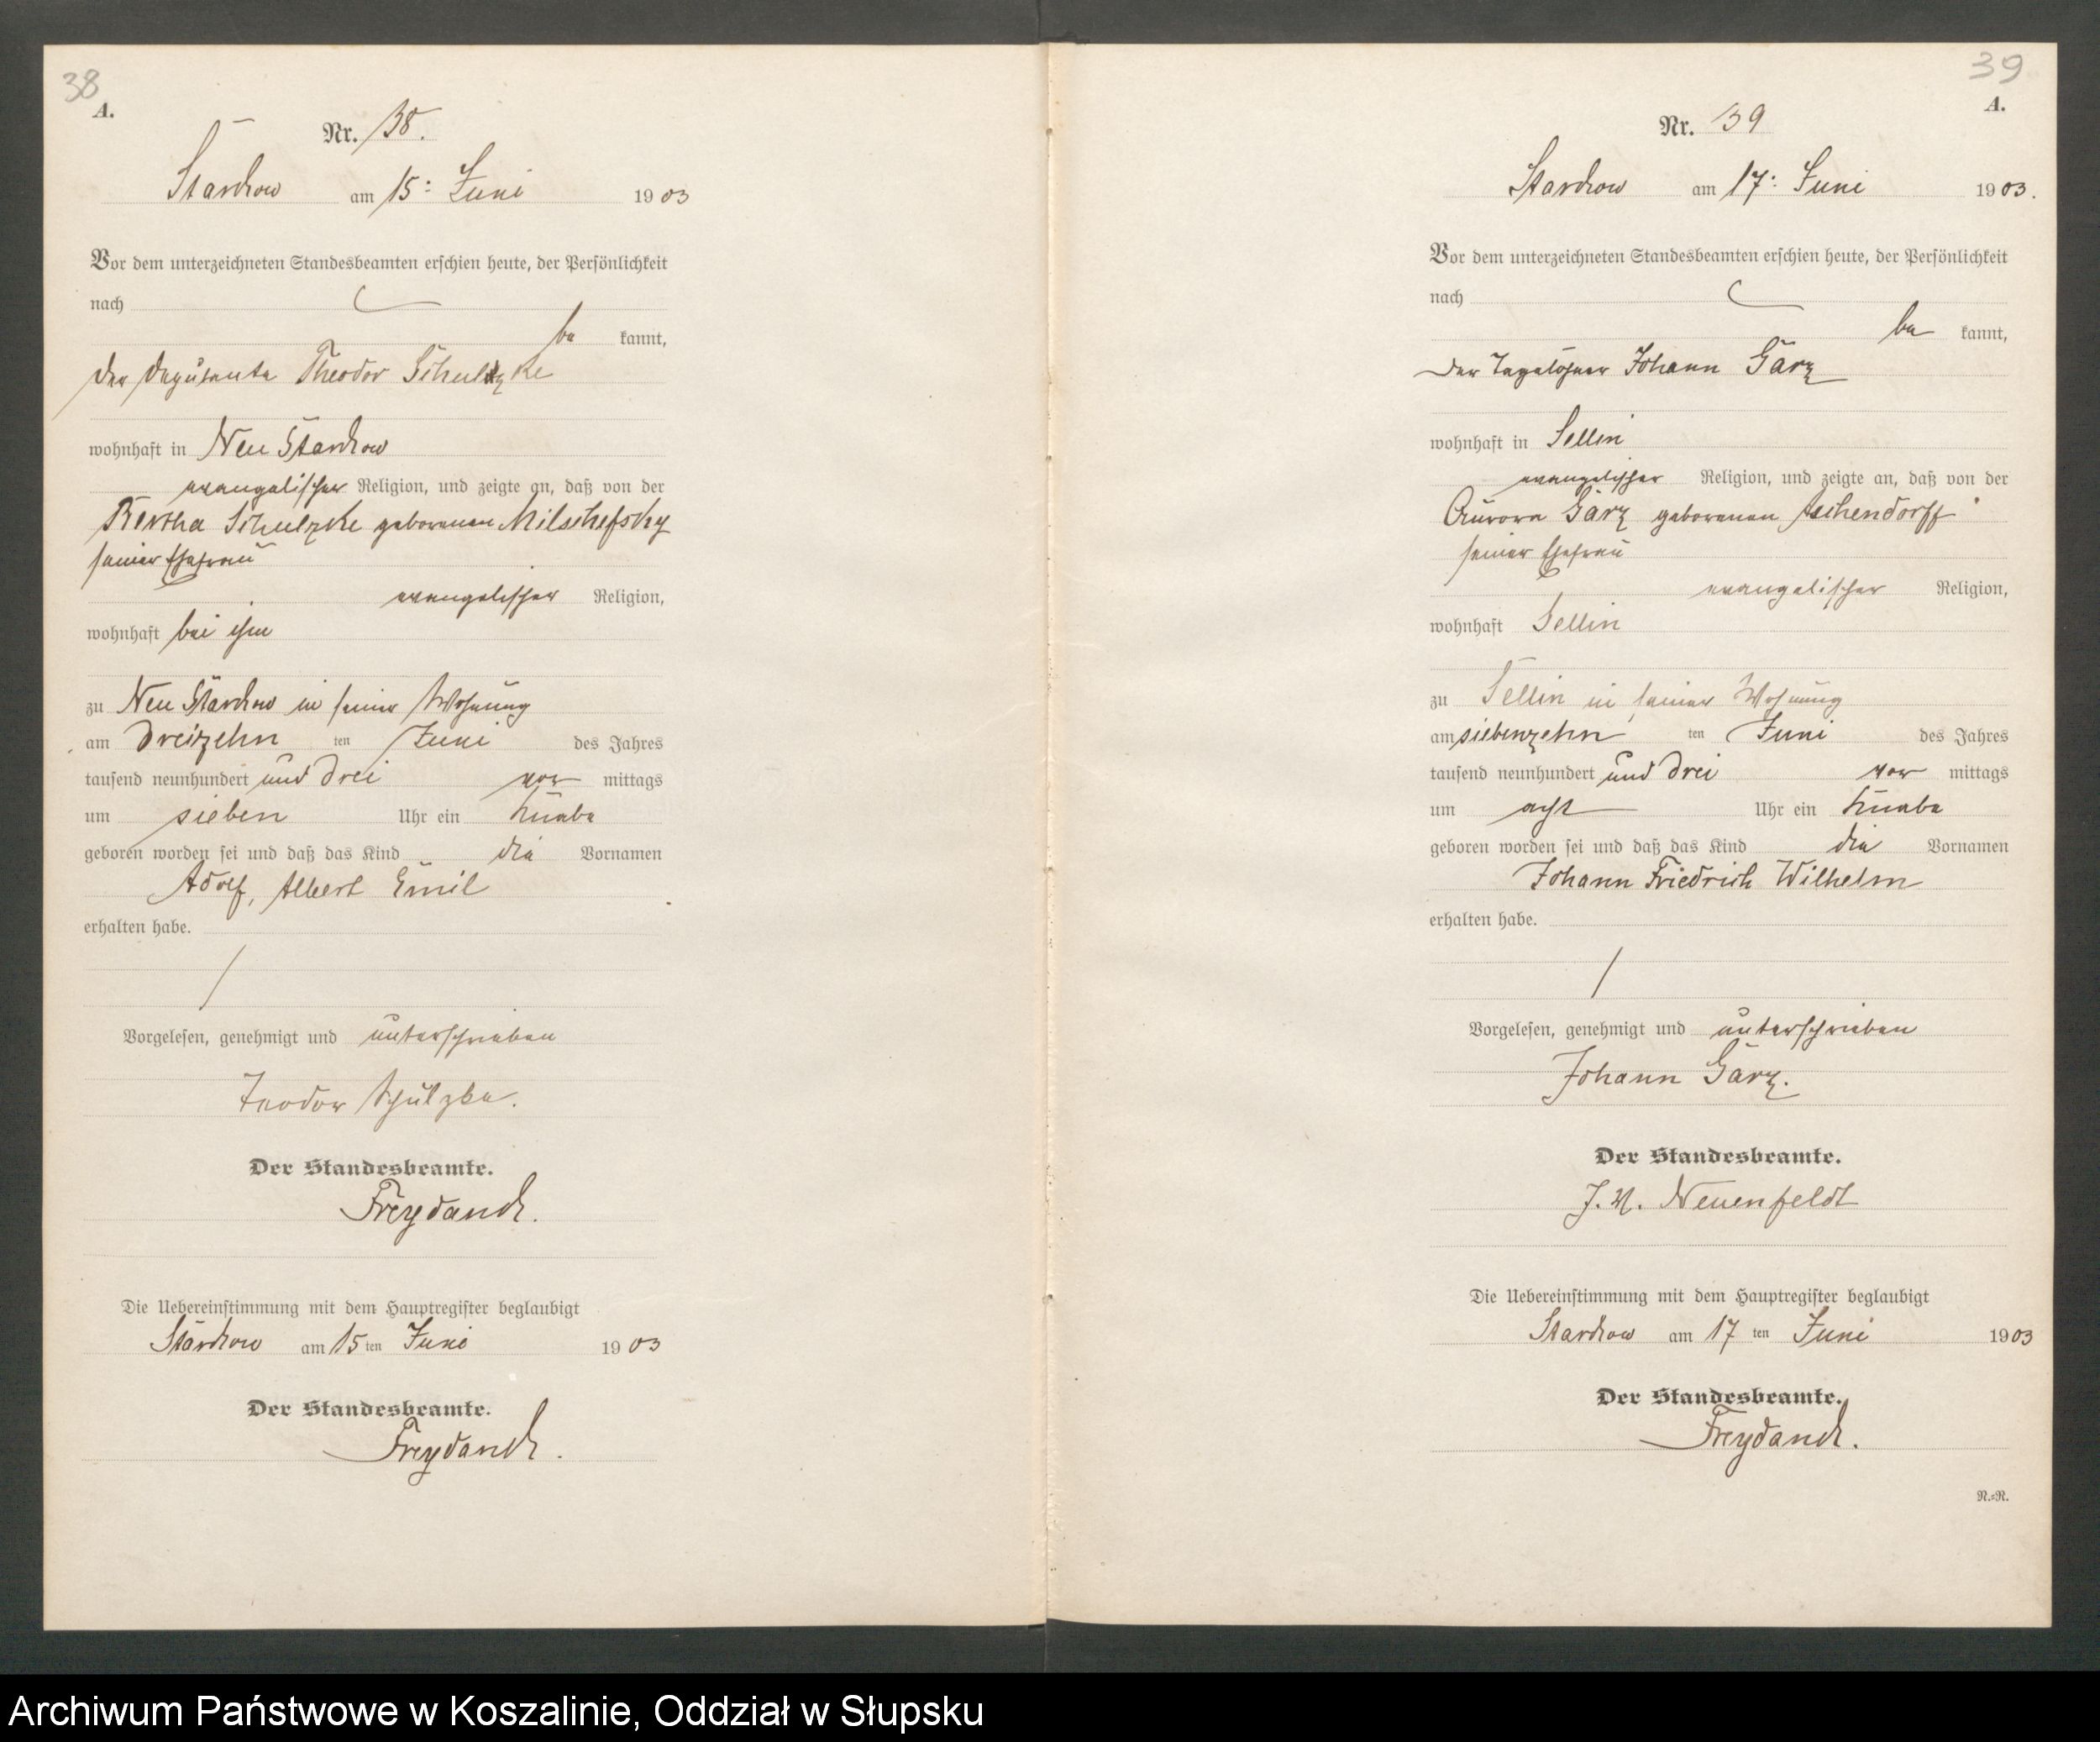 38
A.
Nr. 38.
Starckow am 15: Juni 1903
Vor dem unterzeichneten Standesbeamten erschien heute, der Persönlichkeit
nach
be kannt,
der Deputante Theodor Schulzke
wohnhaft in Neu Starckow
evangelischer Religion, und zeigte an, daß von der
Bertha Schulzke geborenen Milschefsky
seiner Ehefrau
evangelischer Religion,
wohnhaft bei ihm
zu Neu Starckow in seiner Wohnung
am dreizehn ten Juni des Jahres
tausend neunhundert und drei vor mittags
um sieben Uhr ein Knabe
geboren worden sei und daß das Kind die Vornamen
Adolf, Albert Emil
erhalten habe.
Vorgelesen, genehmigt und unterschrieben
Teodor Schulzke.
Der Standesbeamte.
Freydanck.
Die Uebereinstimmung mit dem Hauptregister beglaubigt
Starckow am 15 ten Juni 1903
Der Standesbeamte.
Freydanck.
39
A.
Nr. 39
Starckow am 17: Juni 1903.
Vor dem unterzeichneten Standesbeamten erschien heute, der Persönlichkeit
nach
be kannt,
der Tagelöhner Johann Garz
wohnhaft in Sellin
evangelischer Religion, und zeigte an, daß von der
Aurora Garz geborenen Aschendorff
seiner Ehefrau
evangelischer Religion,
wohnhaft Sellin
zu Sellin in seiner Wohnung
am siebenzehn ten Juni des Jahres
tausend neunhundert und drei vor mittags
um acht Uhr ein Knabe
geboren worden sei und daß das Kind die Vornamen
Johann Friedrich Wilhelm
erhalten habe.
Vorgelesen, genehmigt und unterschrieben
Johann Garz.
Der Standesbeamte.
J. V. Neuenfeldt
Die Uebereinstimmung mit dem Hauptregister beglaubigt
Starckow am 17 ten Juni 1903
Der Standesbeamte.
Freydanck.
N.=R.
Archiwum Państwowe w Koszalinie, Oddział w Słupsku